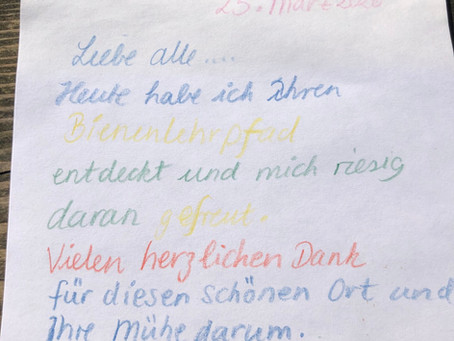 25. März 2020
Liebe alle....
Heute habe ich Ihren
Bienenlehrpfad
entdeckt und mich riesig
daran gefreut.
Vielen herzlichen Dank
für diesen schönen Ort und
Ihre Mühe darum.